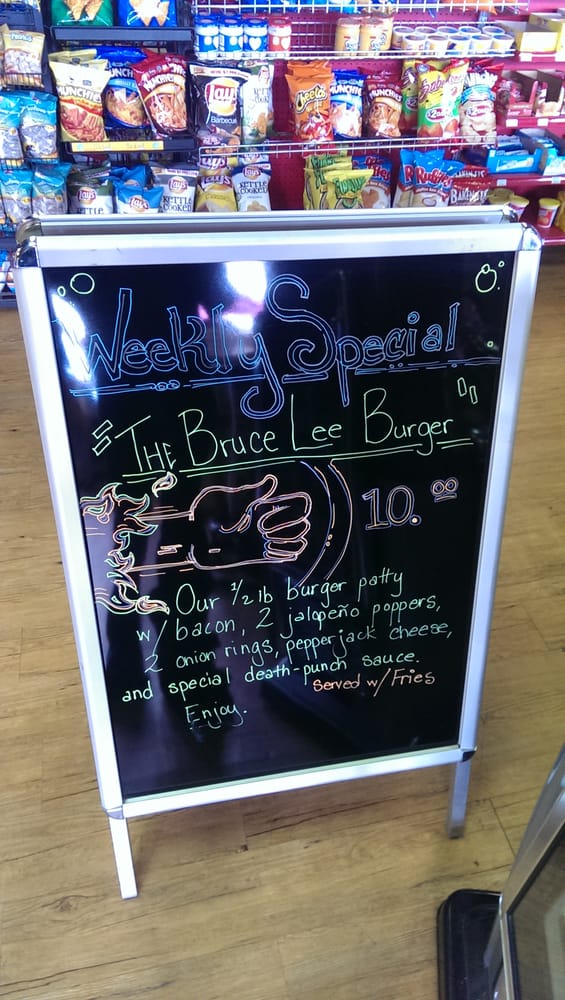 MUNCHIES
MUNCHIES
Lay's
Barbecue
KETTLE
Cheetos
MUNCHIES
MUNCHIES
Lay's
Lay's
KETTLE
COOKED
Lay's
KETTLE
COOKED
Ruffles
Ruffles
BAKEN-ETS
Weekly Special
The Bruce Lee Burger
10.00
Our 1/2 lb burger patty
w/ bacon, 2 jalapeño poppers,
2 onion rings, pepperjack cheese,
and special death-punch sauce.
Served w/ Fries
Enjoy.